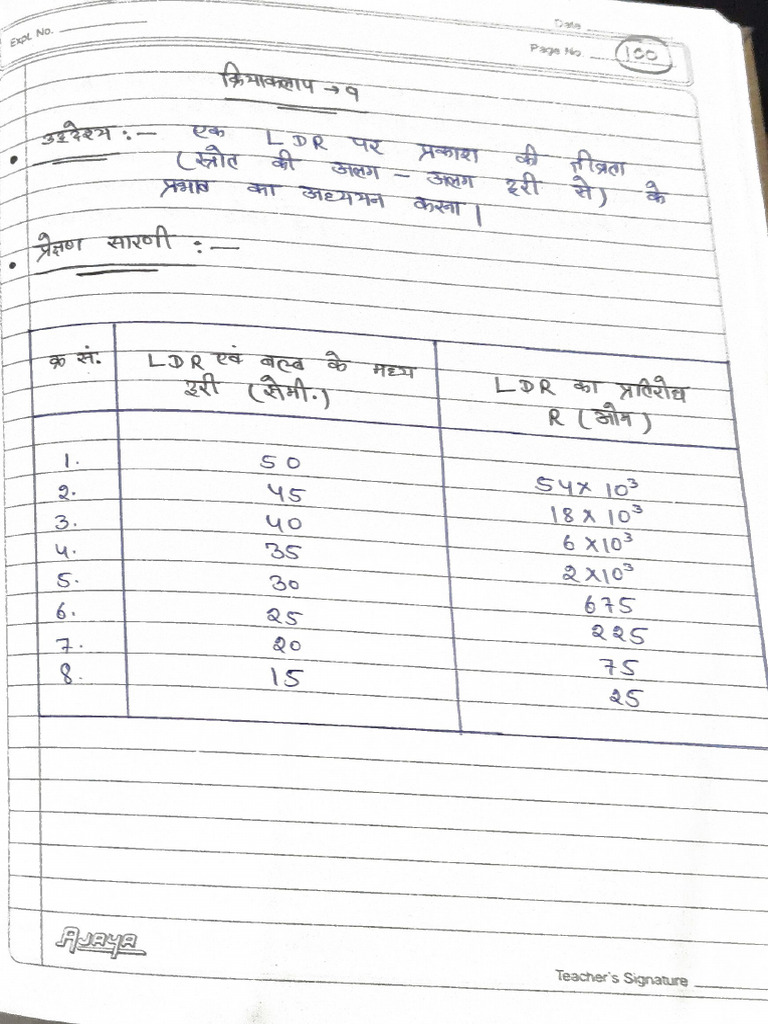 Expt. No.
Date
Page No. 100
क्रियाकलाप → 9
• उद्देश्य :— एक LDR पर प्रकाश की तीव्रता
(स्रोत की अलग - अलग दूरी से) के
प्रभाव का अध्ययन करना।
• प्रेक्षण सारणी :—
क्र सं. LDR एवं बल्ब के मध्य दूरी (सेमी.) LDR का प्रतिरोध R (ओम)
1. 50 54 × 10³
2. 45 18 × 10³
3. 40 6 × 10³
4. 35 2 × 10³
5. 30 675
6. 25 225
7. 20 75
8. 15 25
AJAYA
Teacher's Signature